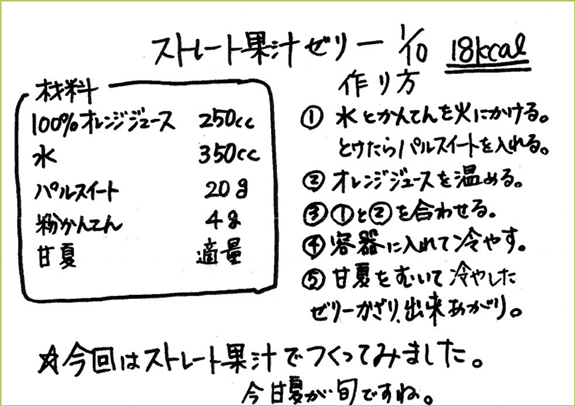 ストレート果汁ゼリー 1/10 18kcal
材料
100%オレンジジュース 250cc
水 350cc
パルスイート 20g
粉かんてん 4g
甘夏 適量
作り方
① 水とかんてんを火にかける。
とけたらパルスイートを入れる。
② オレンジジュースを温める。
③ ①と②を合わせる。
④ 容器に入れて冷やす。
⑤ 甘夏をむいて冷やした
ゼリーかざり、出来あがり。
☆今回はストレート果汁でつくってみました。
今甘夏が旬ですね。